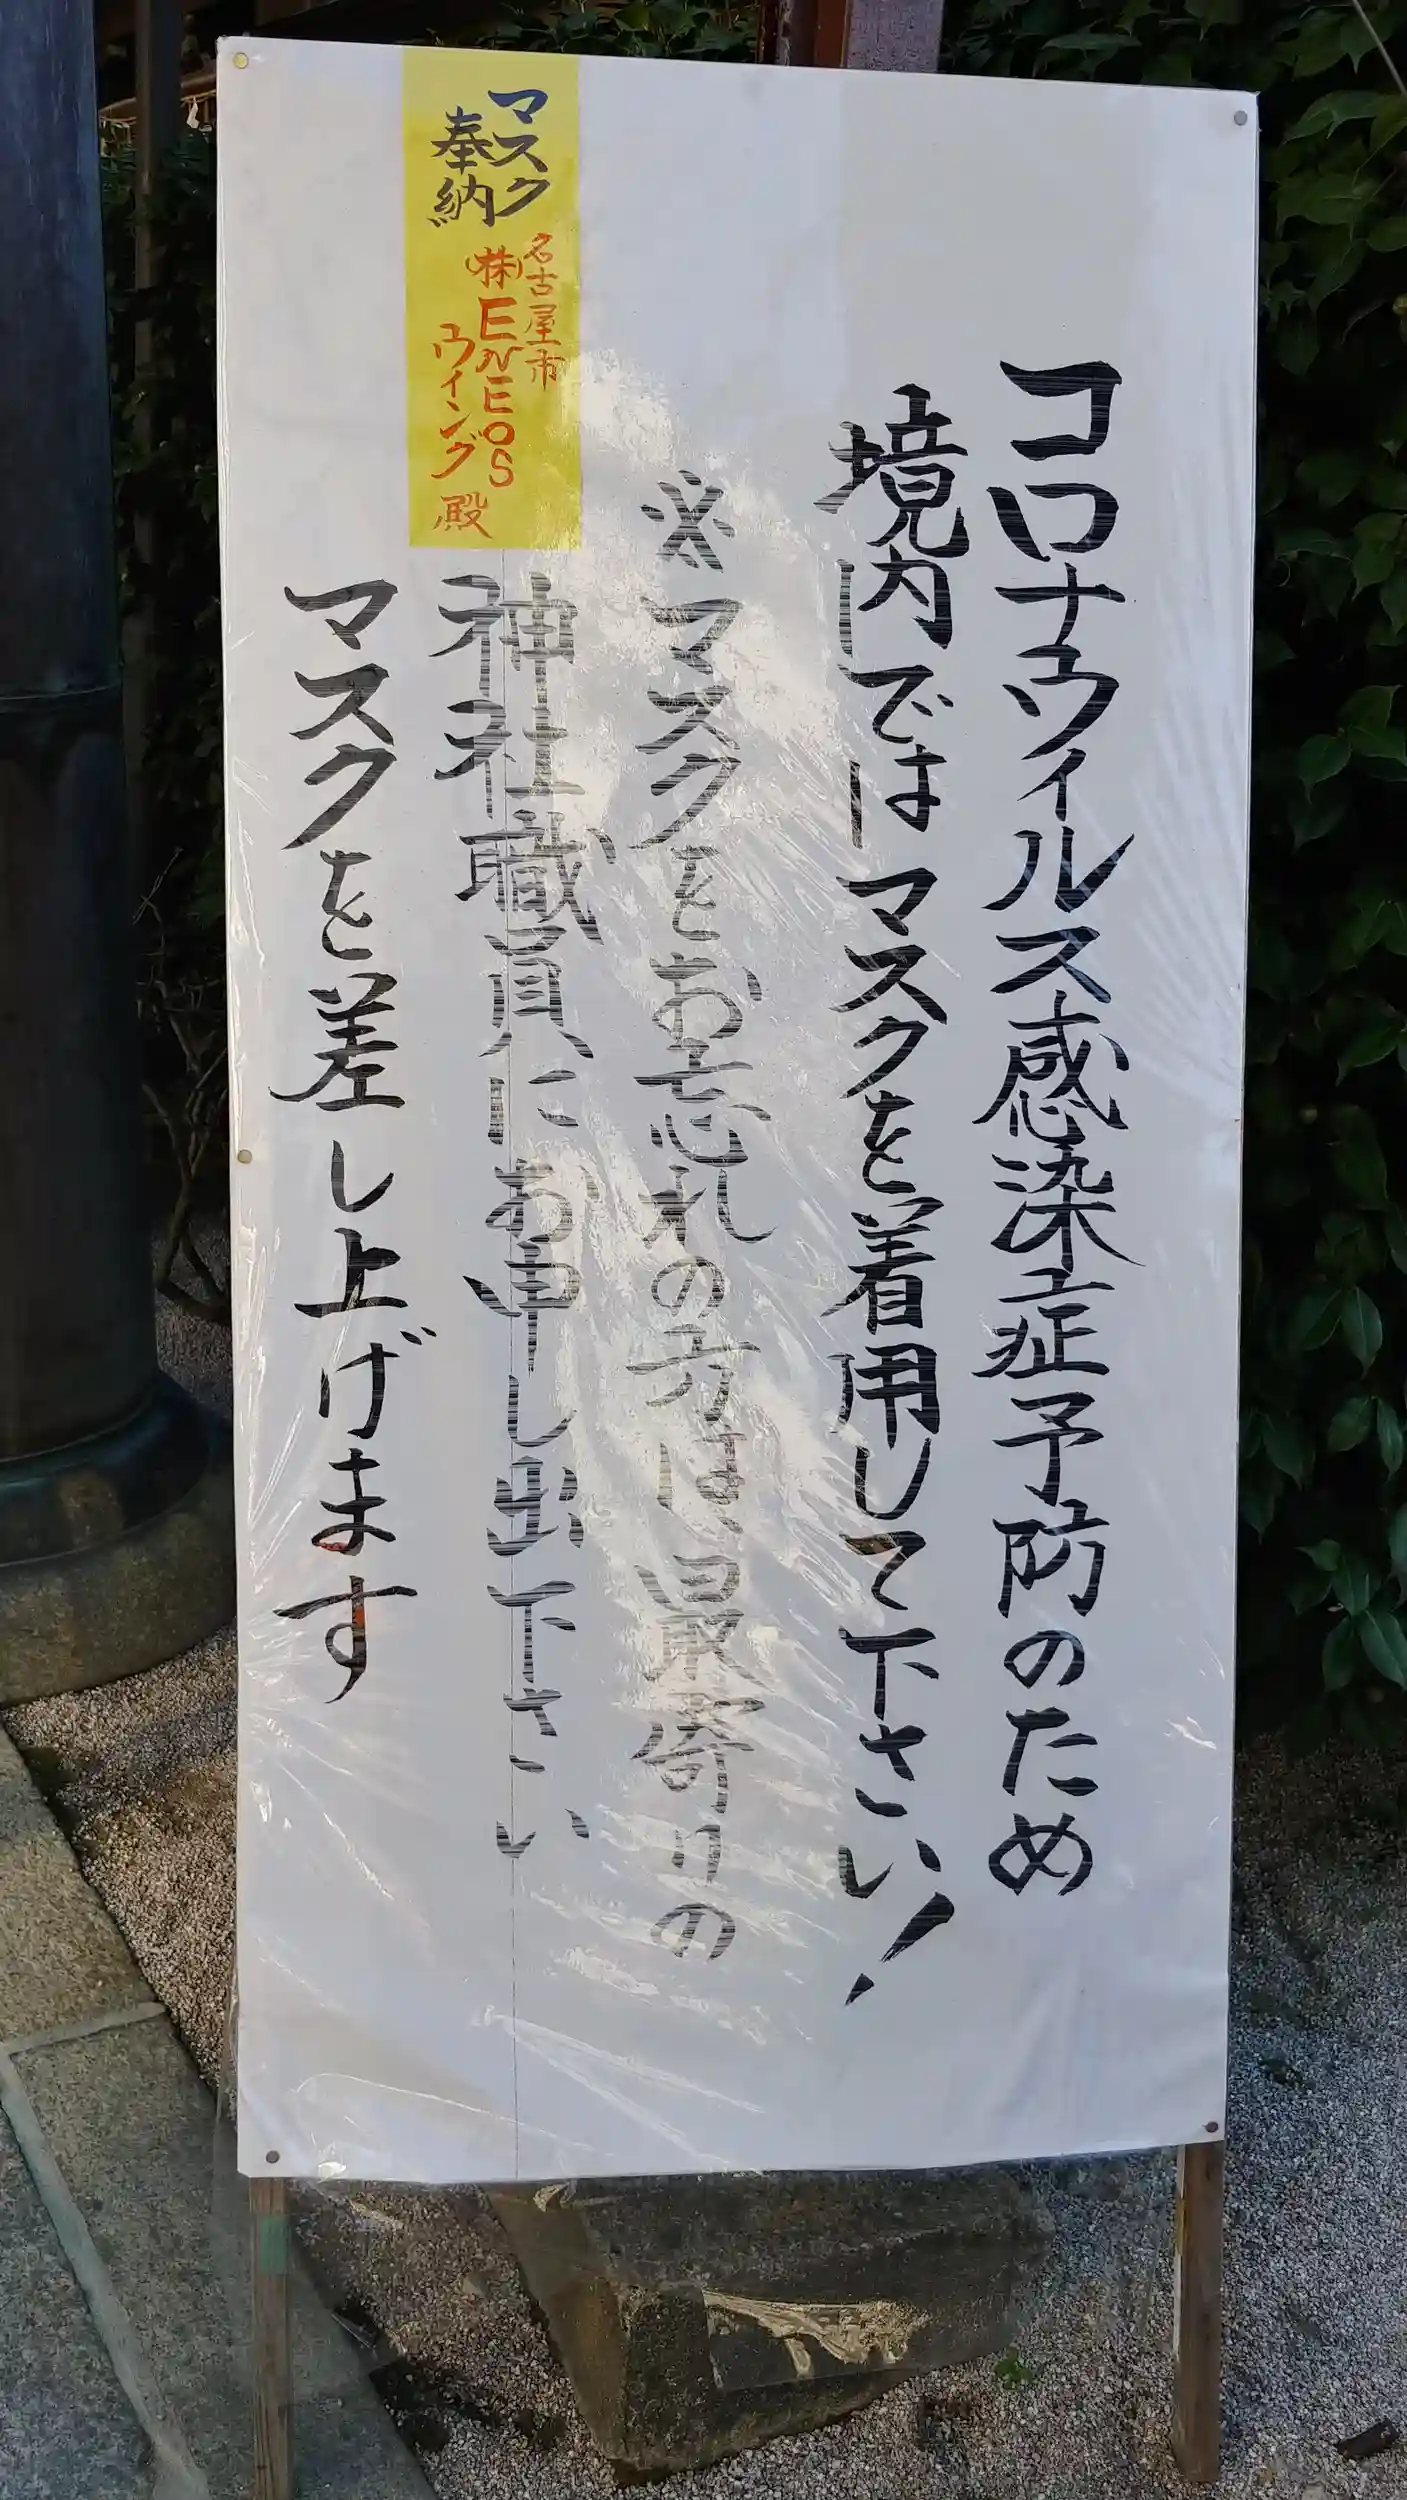 コロナウィルス感染症予防のため
境内ではマスクを着用して下さい!
※マスクをお忘れの方は、最寄りの
神社職員にお申し出下さい
マスクを差し上げます
マスク
奉納
名古屋市
(株)ENEOS
ウイング殿